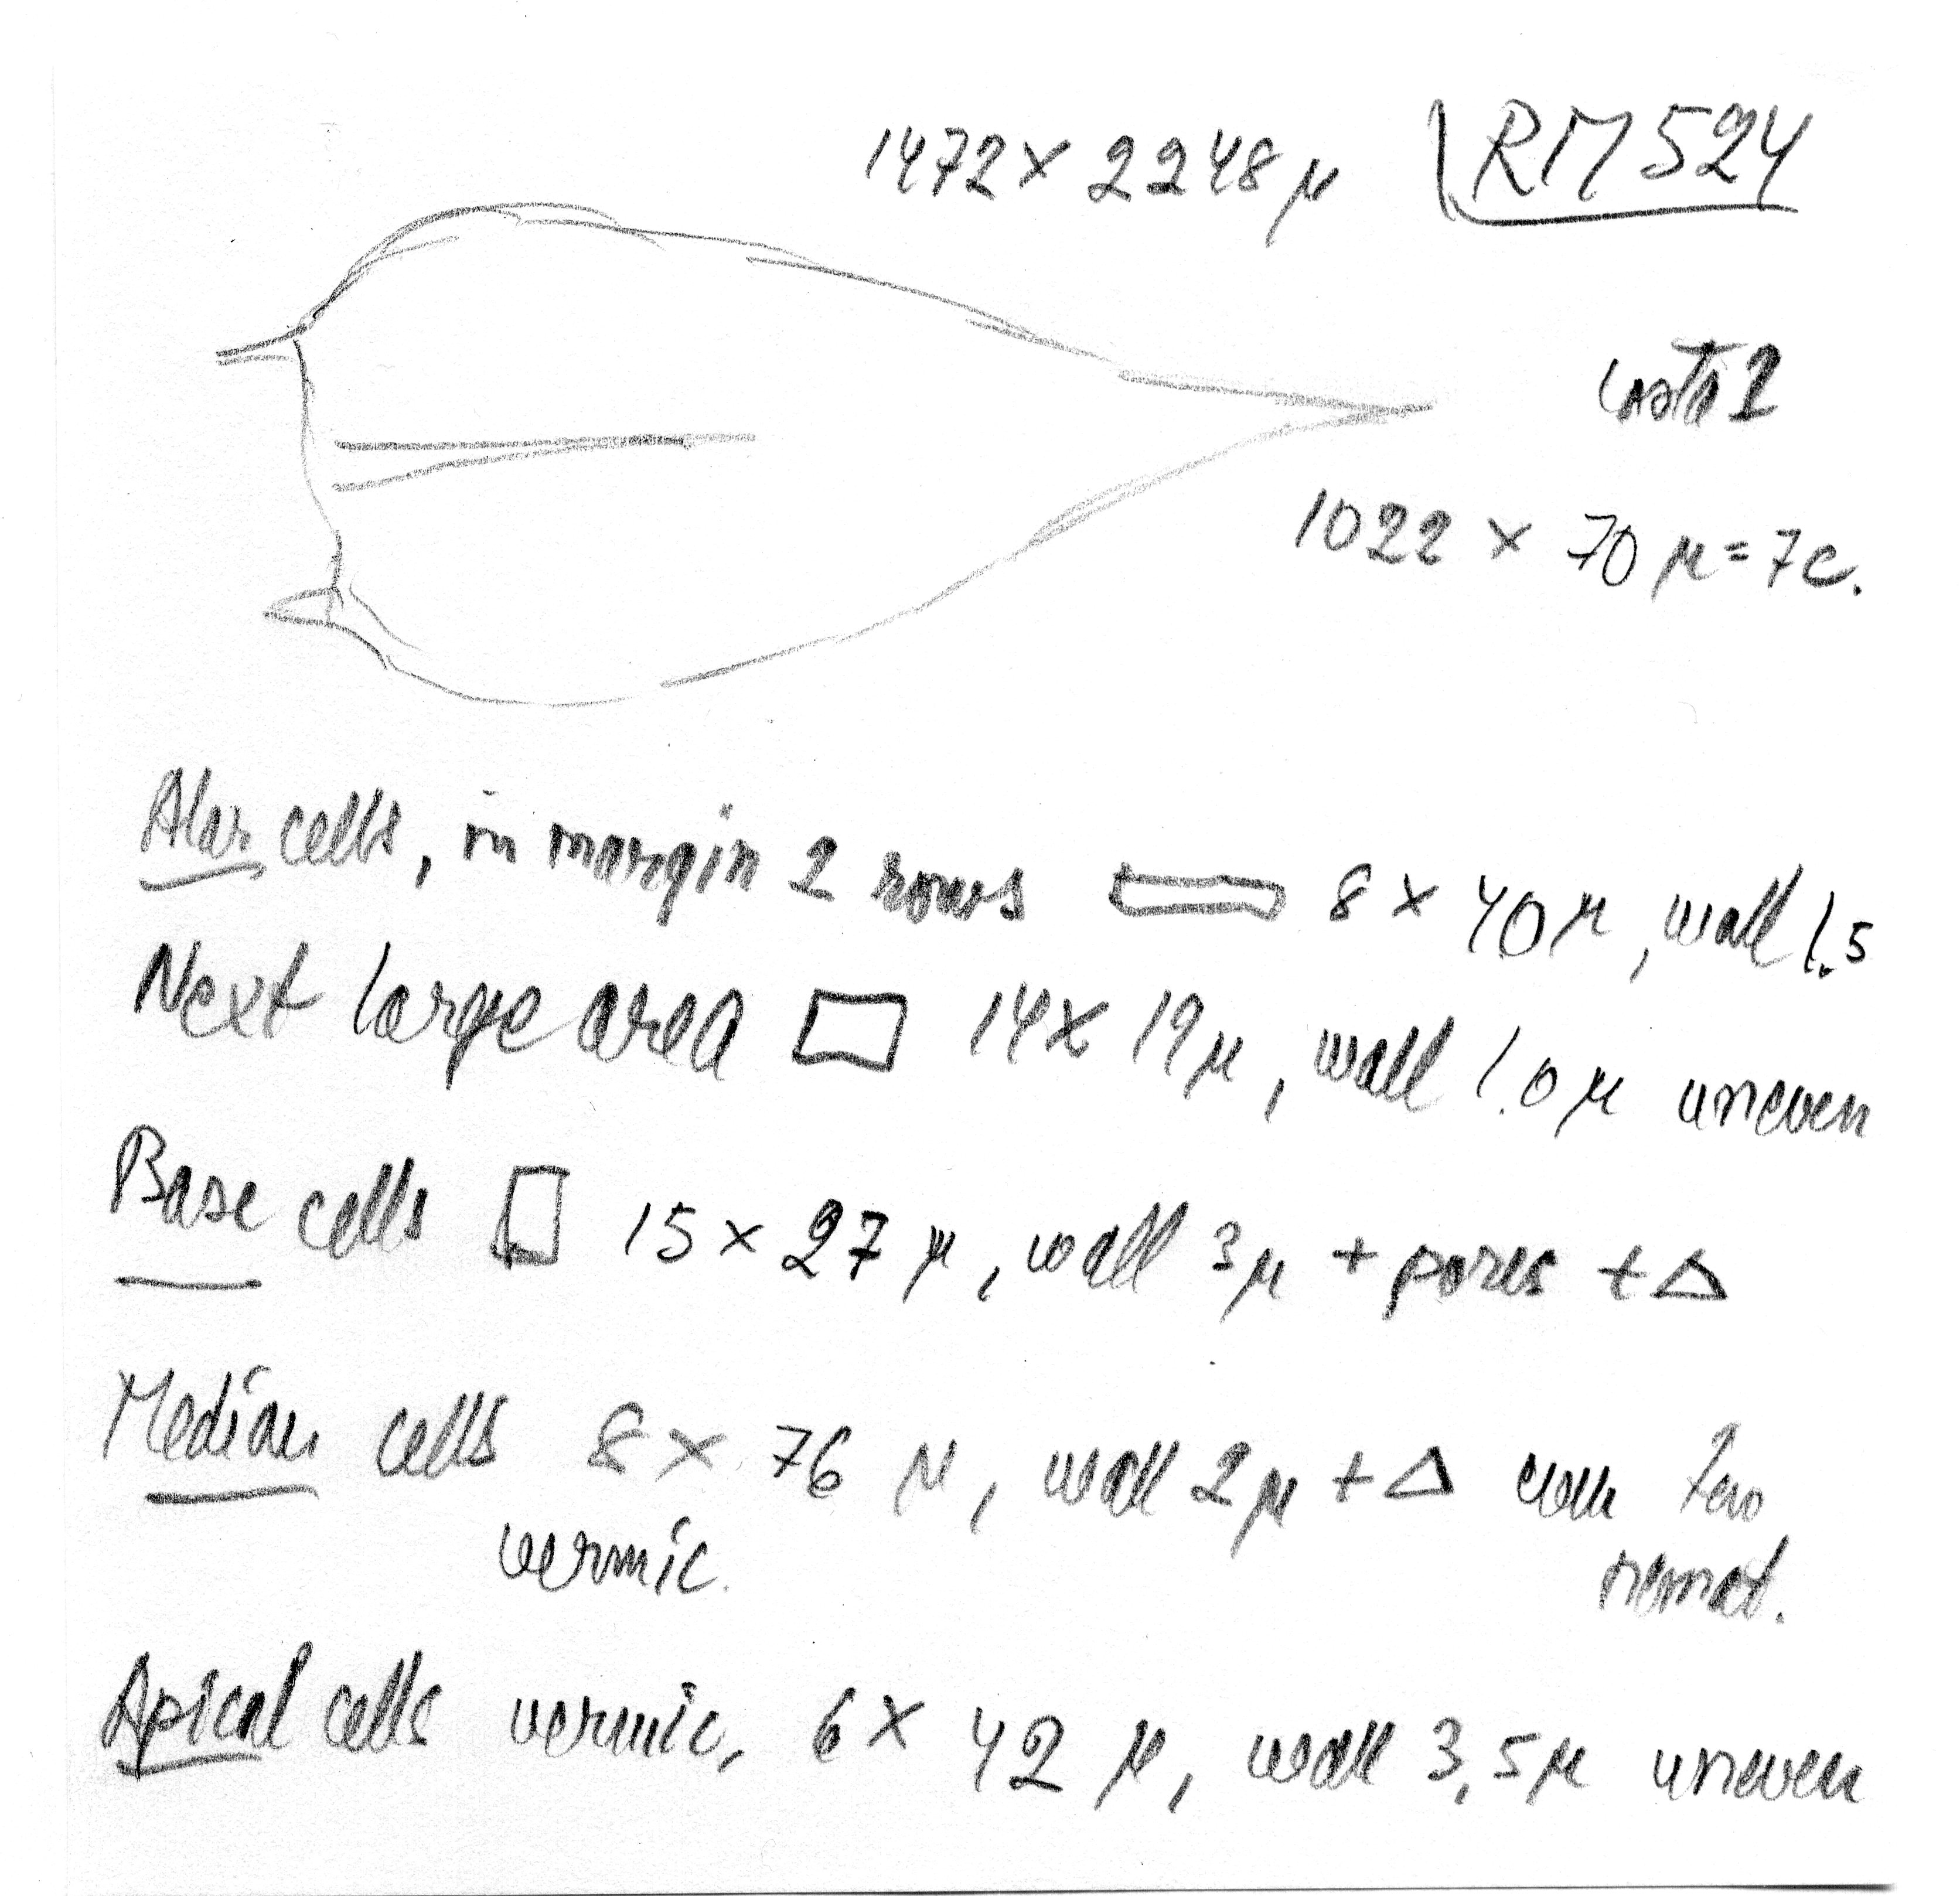 1472 × 2248 µ
RM 524
costa 2
1022 × 70 µ = 7c.
Alar cells, in margin 2 rows 8 × 40 µ, wall 1.5
Next large area 14 × 19 µ, wall 1.0 µ uneven
Base cells 15 × 27 µ, wall 3 µ + pores + Δ
Median cells 8 × 76 µ, wall 2 µ + Δ
vermic.
Apical cells vermic, 6 × 42 µ, wall 3,5 µ uneven